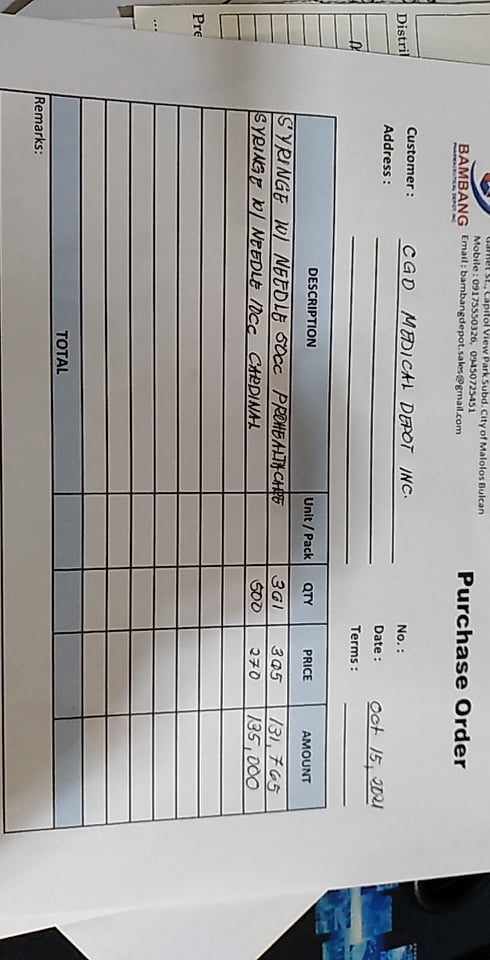 BAMBANG
PHARMACEUTICAL DEPOT INC.
Garnet St., Capitol View Park Subd. City of Malolos Bulcan
Mobile : 09175550326, 09450725451
Email : bambangdepot.sales@gmail.com
Purchase Order
Customer : CGD MEDICAL DEPOT INC. No. :
Address : Date : Oct 15, 2021
Terms :
DESCRIPTION Unit / Pack QTY PRICE AMOUNT
SYRINGE W/ NEEDLE 50cc PROHEALTHCARE 361 365 131,765
SYRINGE W/ NEEDLE 10cc CARDINAL 500 270 135,000
TOTAL
Remarks:
Distri
Pre